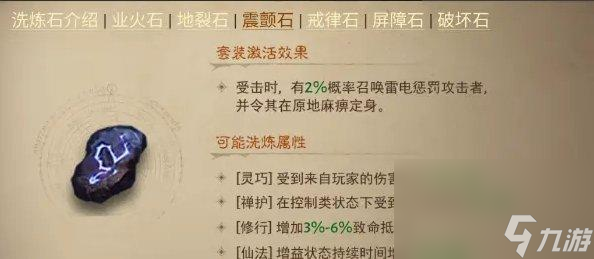 洗炼石介绍 | 业火石 | 地裂石 | 震颤石 | 戒律石 | 屏障石 | 破坏石
套装激活效果
受击时，有2%概率召唤雷电惩罚攻击者，
并令其在原地麻痹定身。
可能洗炼属性
[灵巧] 受到来自玩家的伤害
[禅护] 在控制类状态下受到
[修行] 增加3%-6%致命抵
[仙法] 增益状态持续时间增
九游